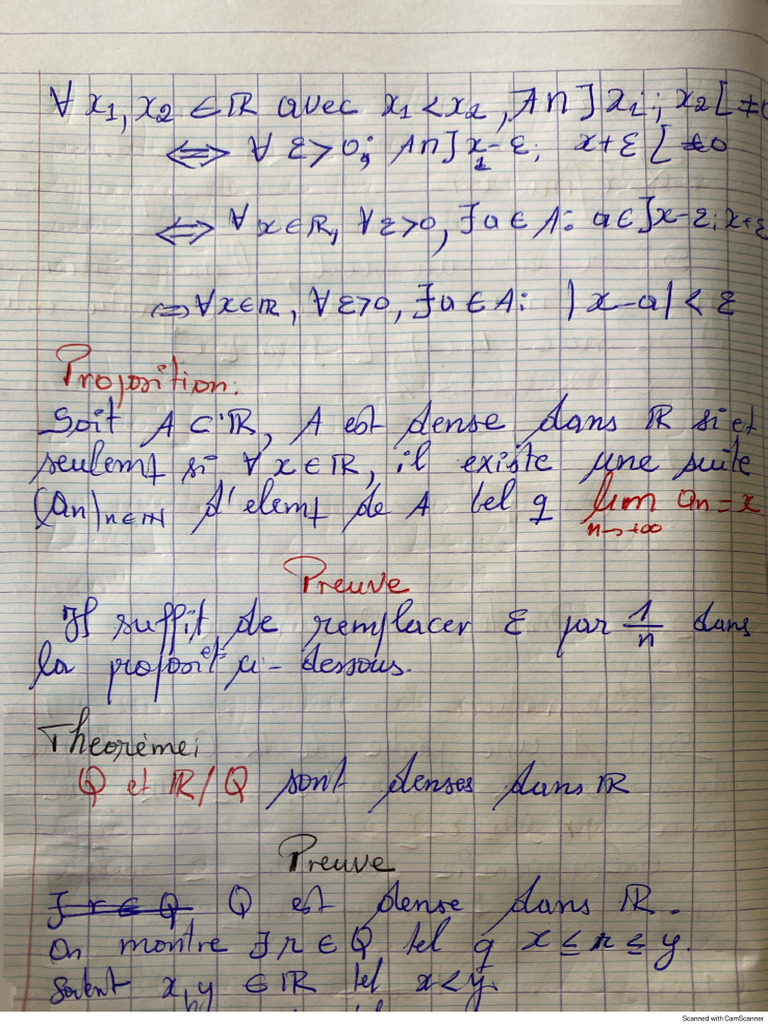 ∀ x₁, x₂ ∈ ℝ avec x₁ < x₂, A∩]x₁; x₂[ ≠0
⟺ ∀ ε>0; A∩]x-ε; x+ε[ ≠0
⟺ ∀ x∈ℝ, ∀ε>0, ∃a∈A: a∈]x-ε; x+ε
⟺ ∀x∈ℝ, ∀ε>0, ∃a∈A: |x-a| < ε
Proposition:
Soit A⊂ℝ, A est dense dans ℝ si et
seulemt si ∀ x∈ℝ, il existe une suite
(an)n∈ℕ d'elemt de A tel q lim an = x
n→+∞
Preuve
Il suffit de remplacer ε par 1/n dans
la proposit° ci-dessous.
Theorème;
Q et ℝ/Q sont denses dans ℝ
Preuve
∃ r ∈ Q Q est dense dans ℝ.
On montre ∃ r ∈ Q tel q x ≤ r ≤ y.
Soient x, y ∈ ℝ tel x<y.
Scanned with CamScanner